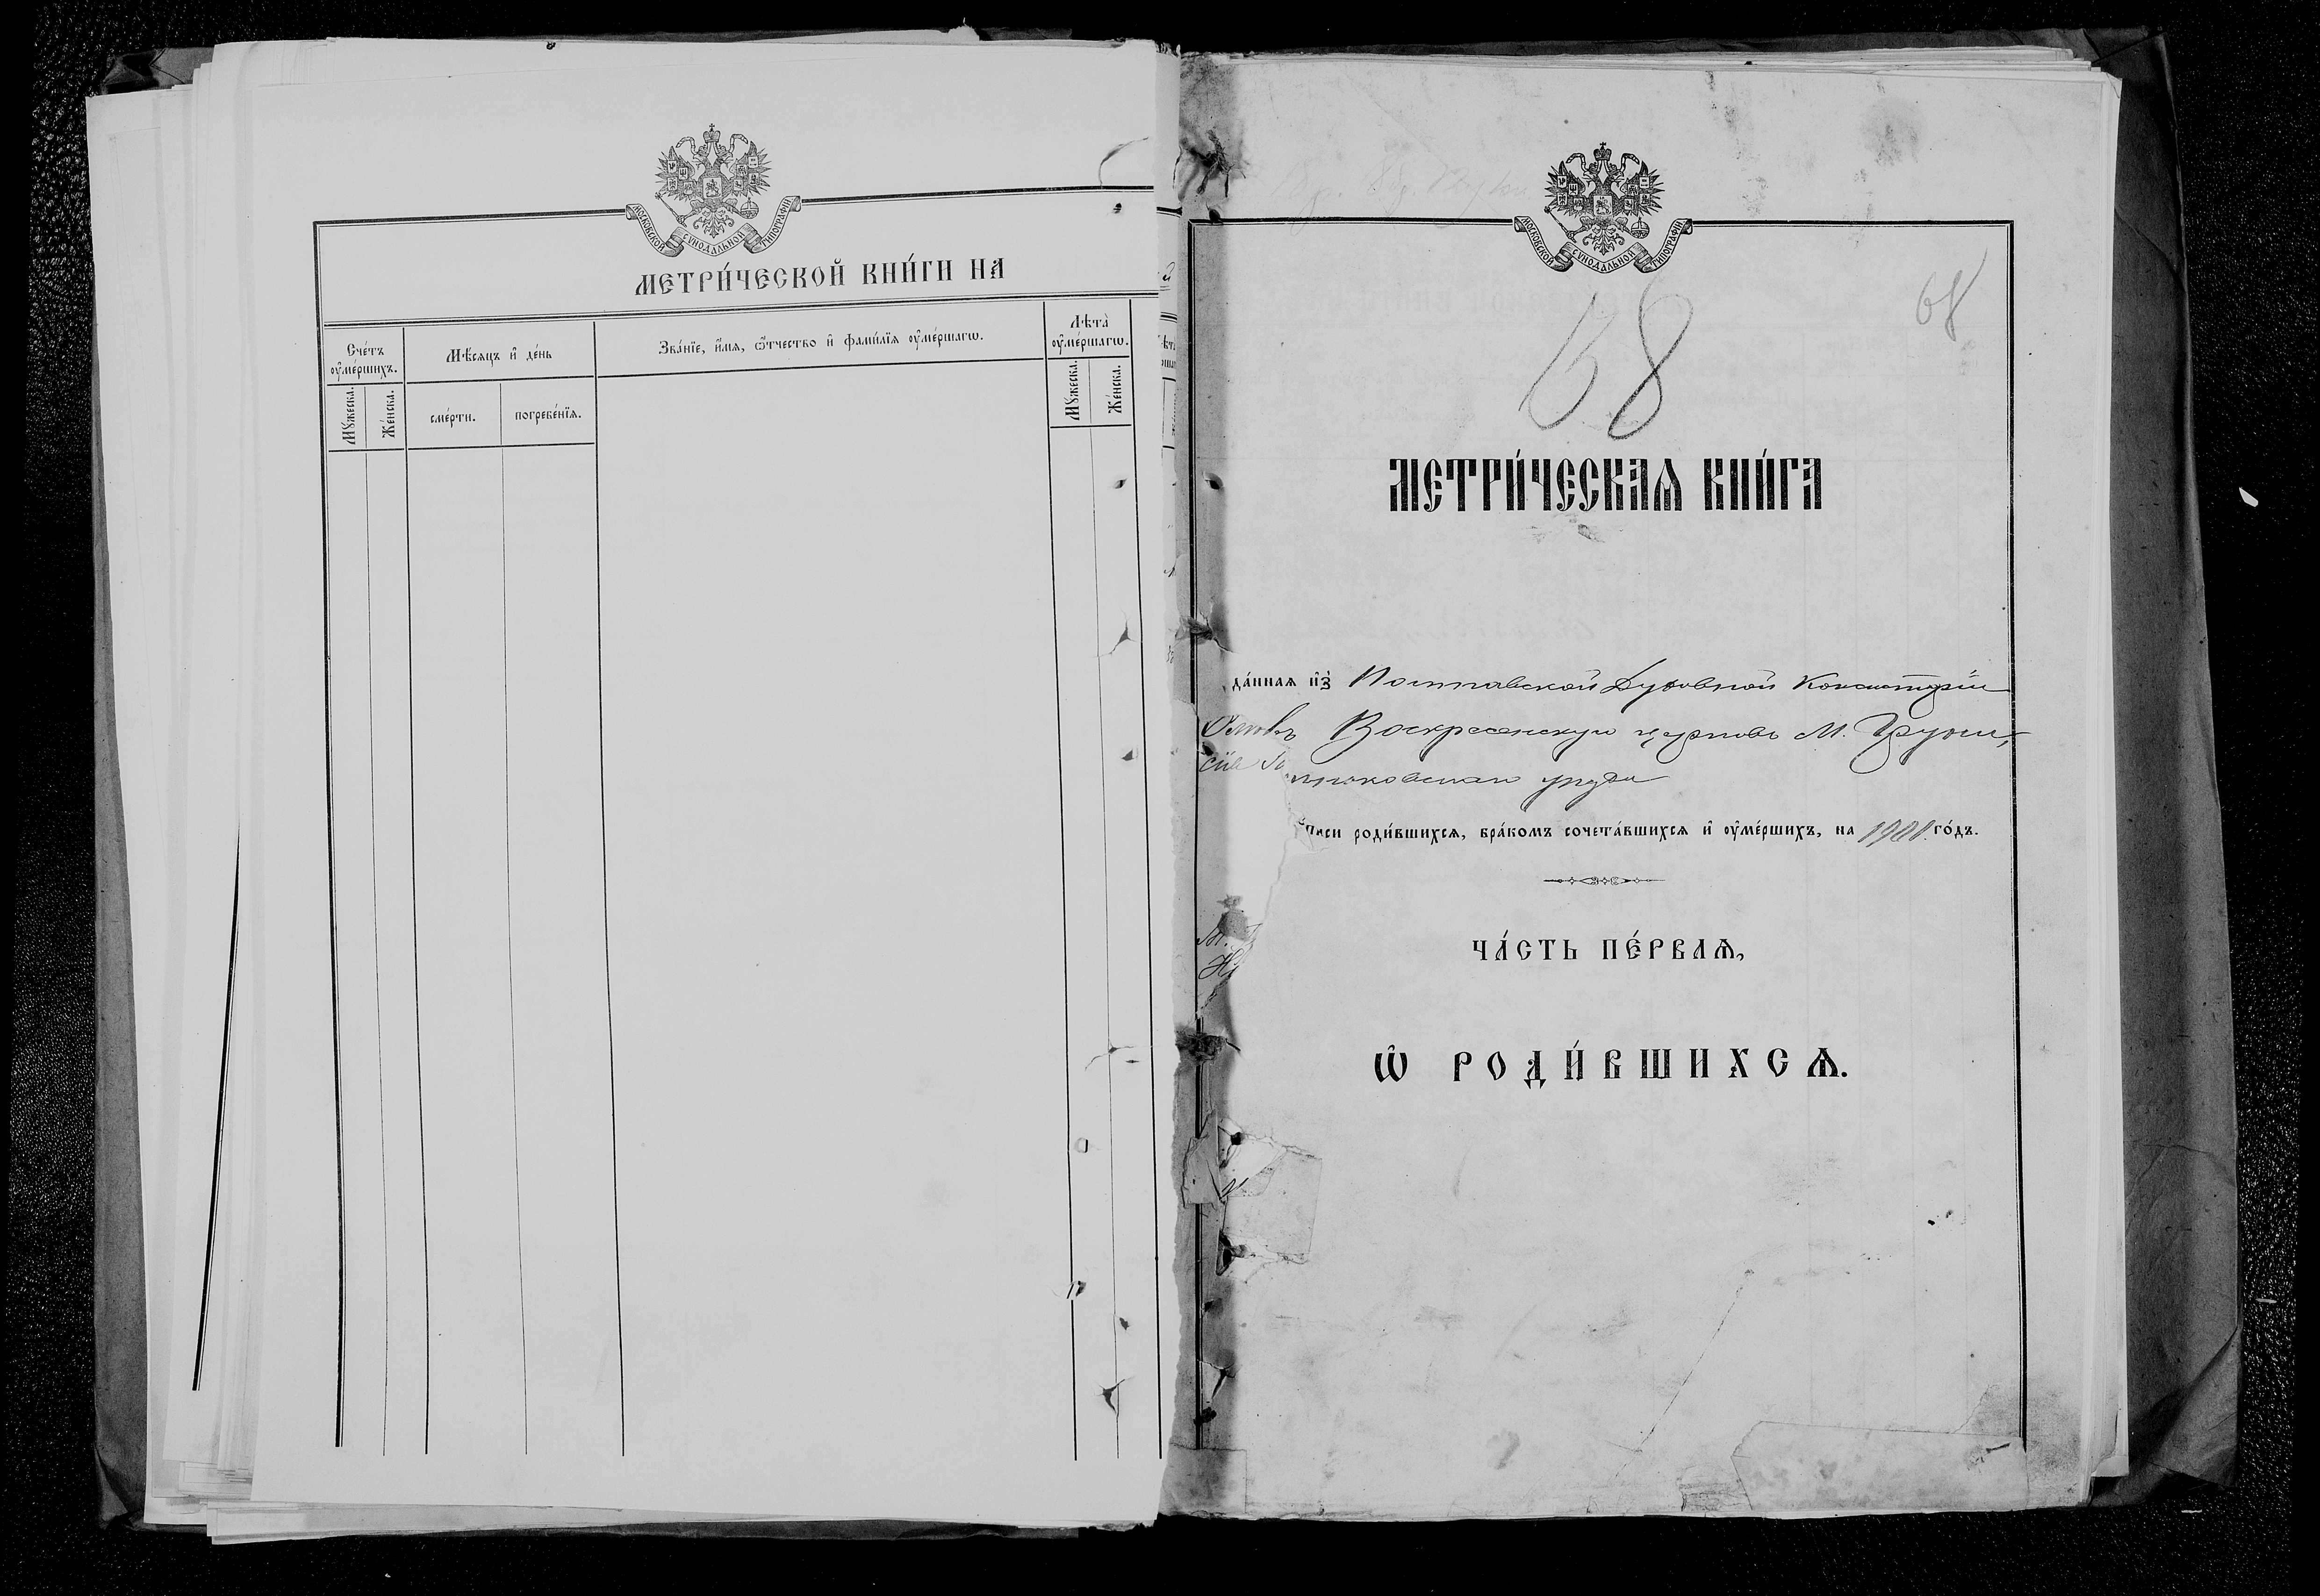 МОСКОВСКОЙ СѴНОДАЛЬНОЙ ТИПОГРАФІИ
МЕТРИ́ЧЕСКОЙ КНИ́ГИ НА
Сче́тъ ᲂу҆ме́ршихъ.
Мѣ́сяцъ и҆ де́нь
Зва́нїе, и҆́мѧ, ѻ҆́тчество и҆ фами́лїѧ ᲂу҆ме́ршагѡ.
Лѣта̀ ᲂу҆ме́ршагѡ.
Мꙋ́жеска.
Же́нска.
сме́рти.
погребе́нїѧ.
Мꙋ́жеска.
Же́нска.
МОСКОВСКОЙ СѴНОДАЛЬНОЙ ТИПОГРАФІИ
68
68
МЕТРИ́ЧЕСКАѦ КНИ́ГА
да́ннаѧ и҆з̾ Полтавской Духовной Консисторіи
Воскресенскую церковь М. Груни,
уезда
писи роди́вшихсѧ, бра́комъ сочета́вшихсѧ и҆ ᲂу҆ме́ршихъ, на 1901 го́дъ.
ЧА́СТЬ ПЕ́РВАѦ,
Ѡ҆ РОДИ́ВШИХСѦ.